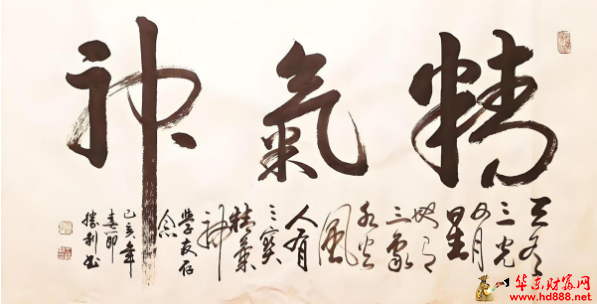 精氣神
天有
三光
日月
星
地有
三象
水火
風
人有
三寶
精氣
神
學友存
念
己亥年
春節
勝利书
华东财富网
www.hd888.net